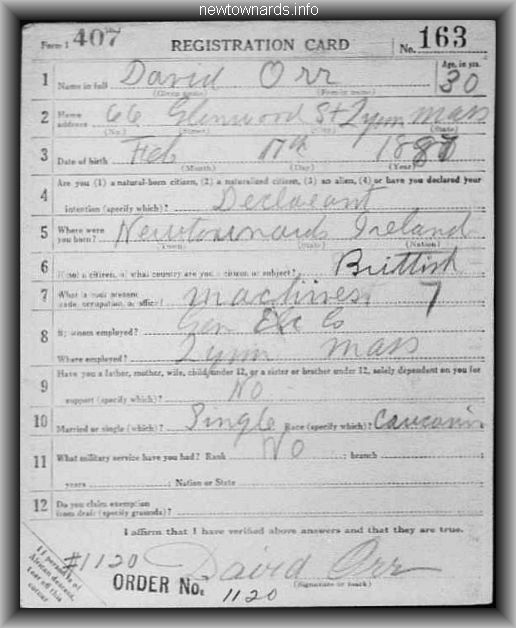 newtownards.info
Form 1 407 REGISTRATION CARD No. 163
1 Name in full David Orr Age, in yrs. 30
(Given name) (Family name)
2 Home address 66 Glenwood St Lynn Mass
(No.) (Street) (City) (State)
3 Date of birth Feb 17th 1887
(Month) (Day) (Year)
4 Are you (1) a natural-born citizen, (2) a naturalized citizen, (3) an alien, (4) or have you declared your
intention (specify which)? Declarant
5 Where were you born? Newtownards Ireland
(Town) (State) (Nation)
6 If not a citizen, of what country are you a citizen or subject? Brittish
7 What is your present trade, occupation, or office? 7
8 By whom employed? Gen Elc Co
Where employed? Lynn Mass
9 Have you a father, mother, wife, child under 12, or a sister or brother under 12, solely dependent on you for
support (specify which)? No
10 Married or single (which)? Single Race (specify which)?
11 What military service have you had? Rank No ; branch
years ; Nation or State
12 Do you claim exemption from draft (specify grounds)?
I affirm that I have verified above answers and that they are true.
#1120 David Orr
(Signature or mark)
ORDER No. 1120
If person is of African descent, tear off this corner